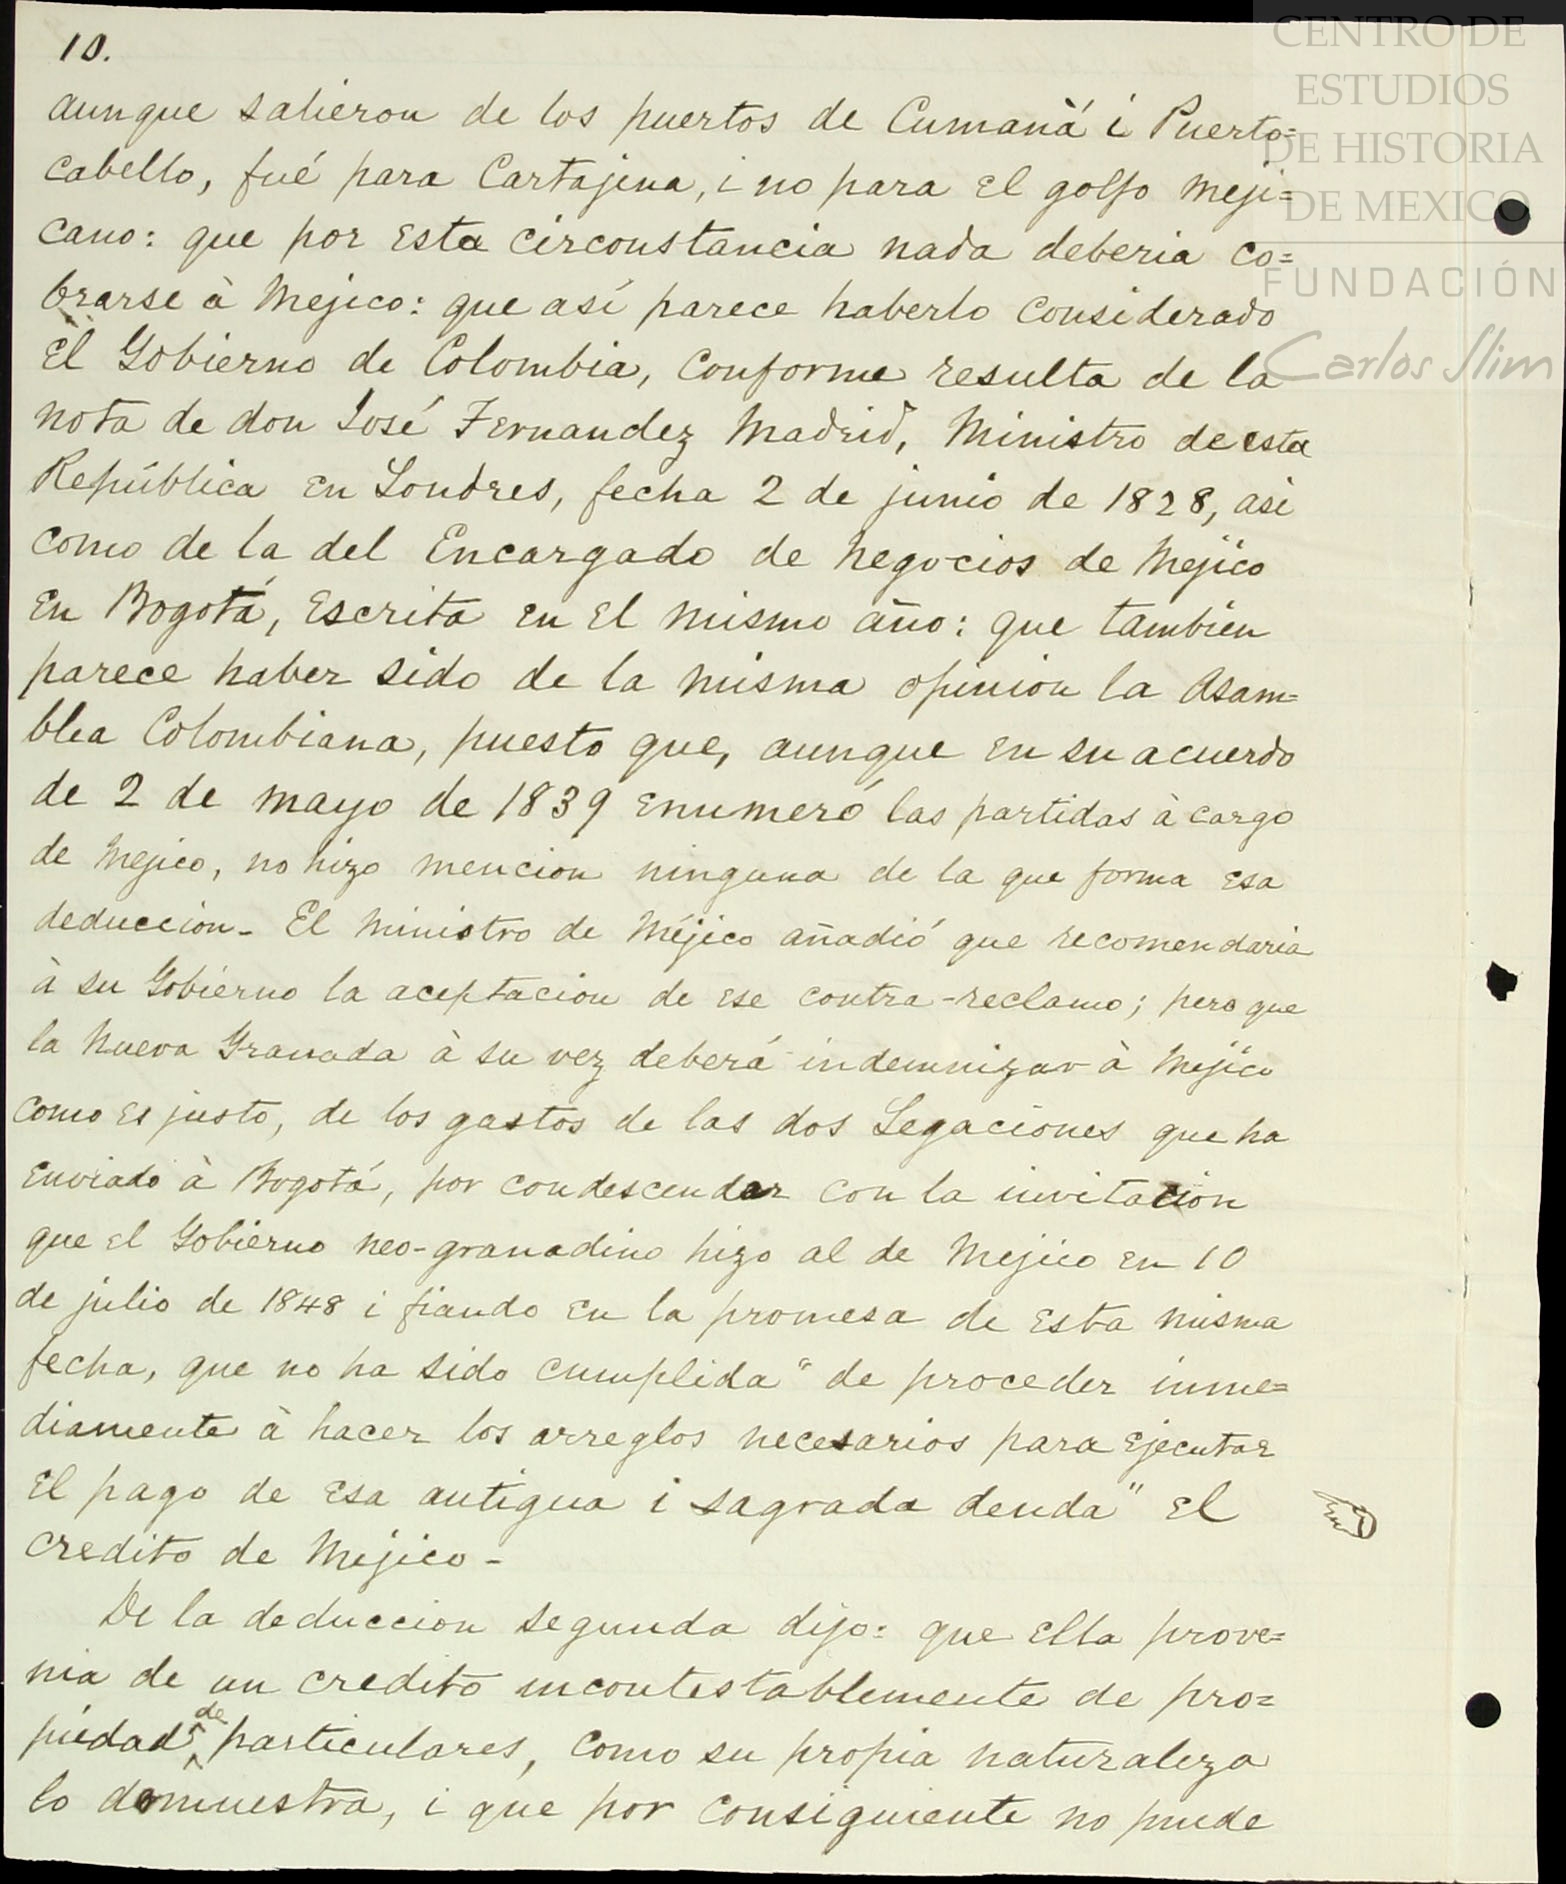 10.
CENTRO DE
ESTUDIOS
DE HISTORIA
DE MEXICO
FUNDACIÓN
Carlos Slim
aunque salieron de los puertos de Cumaná i Puerto=
cabello, fué para Cartajena, i no para el golfo meji=
cano: que por esta circonstancia nada deberia co=
brarse à Mejico: que así parece haberlo considerado
el Gobierno de Colombia, conforme resulta de la
nota de don José Fernandez Madrid, Ministro de esta
República en Londres, fecha 2 de junio de 1828, asi
como de la del Encargado de negocios de Mejico
en Bogotá, escrita en el mismo año: que tambien
parece haber sido de la misma opinion la Asam=
blea Colombiana, puesto que, aunque en su acuerdo
de 2 de mayo de 1839 enumeró las partidas à cargo
de Mejico, no hizo mencion ninguna de la que forma esa
deduccion- El Ministro de Méjico añadió que recomendaria
à su Gobierno la aceptacion de ese contra-reclamo; pero que
la Nueva Granada à su vez deberá indemnizar à Mejico
como es justo, de los gastos de las dos Legaciones que ha
enviado à Bogotá, por condescender con la invitacion
que el Gobierno neo-granadino hizo al de Mejico en 10
de julio de 1848 i fiando en la promesa de esta misma
fecha, que no ha sido cumplida "de proceder inme=
diamente à hacer los arreglos necesarios para ejecutar
el pago de esa antigua i sagrada deuda" el
credito de Mejico-
De la deduccion segunda dijo: que ella prove=
nia de un credito incontestablemente de pro=
piedad de particulares, como su propia naturaleza
lo demuestra, i que por consiguiente no puede